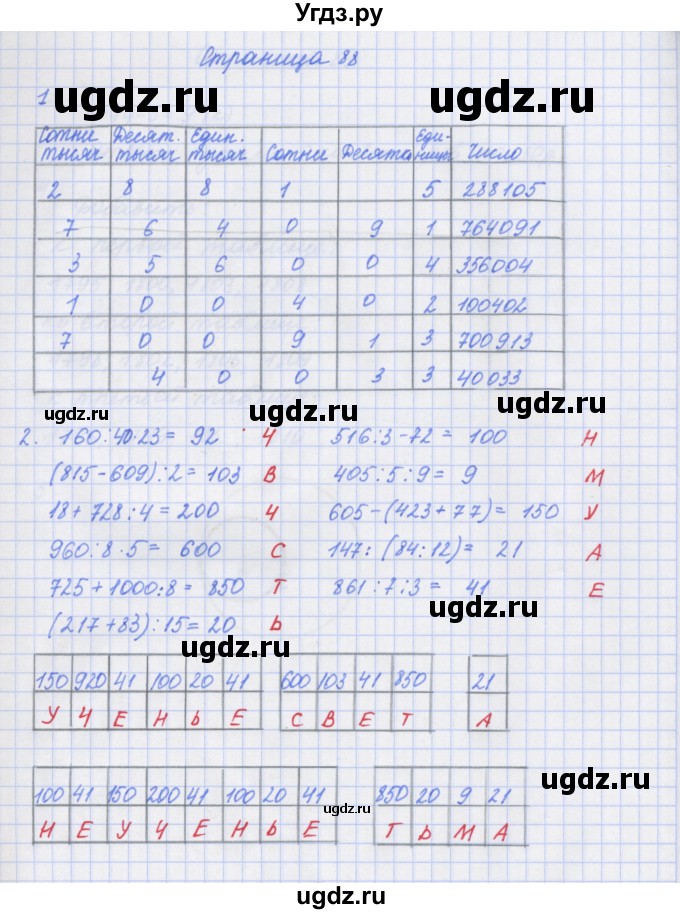 Угдз.ру
Страница 88
ugdz.ru ugdz.ru
1
Сотни тысяч Десят. тысяч Един. тысяч Сотни Десятки Единицы Число
2 8 8 1 5 288105
7 6 4 0 9 1 764091
3 5 6 0 0 4 356004
1 0 0 4 0 2 100402
7 0 0 9 1 3 700913
4 0 0 3 3 40033
ugdz.ru ugdz.ru
2. 160:40·23= 92 Ч 516:3-72= 100 Н
(815-609):2=103 В 405:5:9= 9 М
ugdz.ru ugdz.ru
18+728:4=200 Ч 605-(423+77)= 150 У
960:8·5= 600 С 147:(84:12)= 21 А
725+1000:8= 850 Т 861:7:3= 41 Е
ugdz.ru
(217+83):15=20 Ь
ugdz.ru
150 920 41 100 20 41 600 103 41 850 21
У Ч Е Н Ь Е С В Е Т А
ugdz.ru
100 41 150 200 41 100 20 41 850 20 9 21
ugdz.ru
Н Е У Ч Е Н Ь Е Т Ь М А
ugdz.ru
ugdz.ru